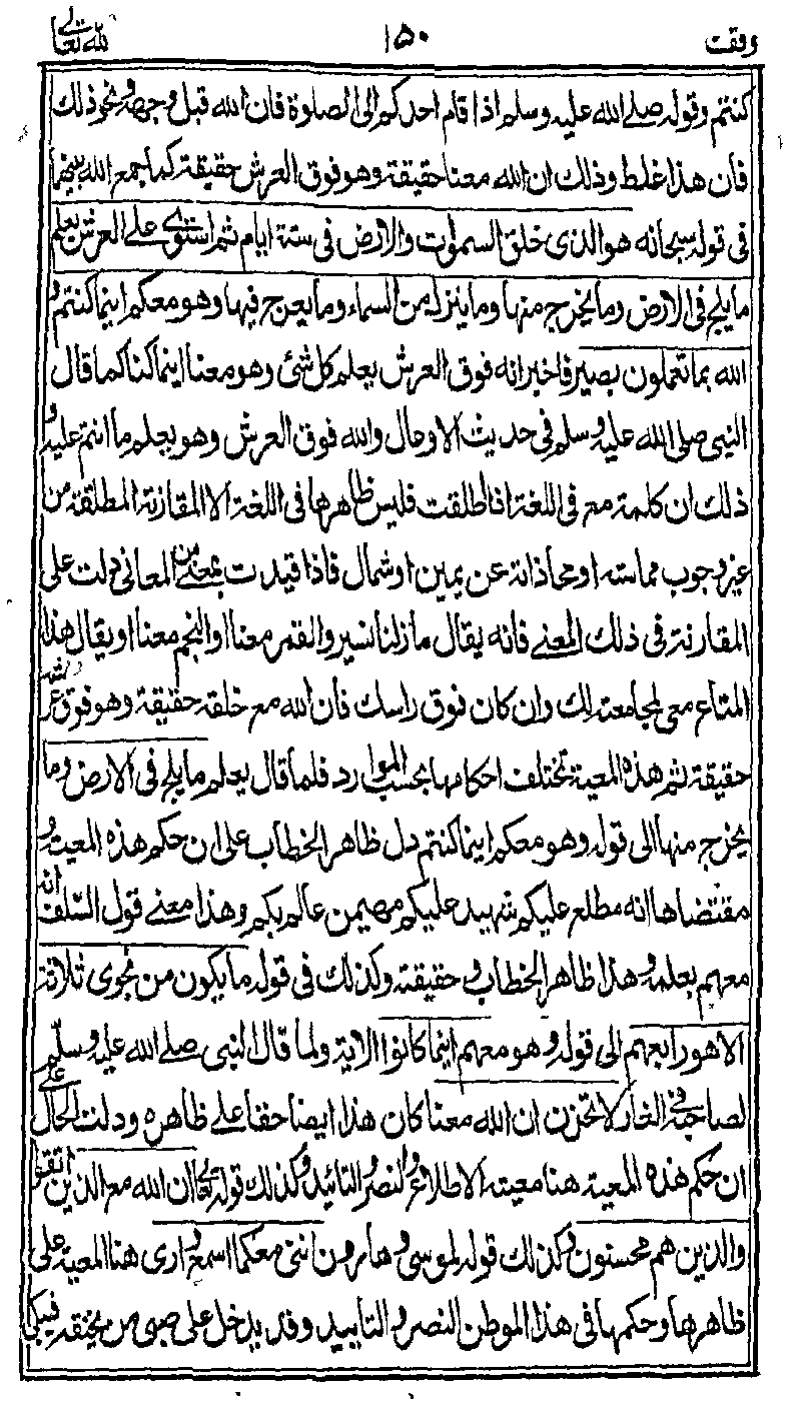 وقف ١٥٠ لله تعالى
كنتم وقوله صلے الله عليه وسلم اذا قام احدكم الى الصلوة فان الله قبل وجهه ونحو ذلك
فان هذا غلط وذلك ان الله معنا حقيقة وهو فوق العرش حقيقة كما جمع الله بينهما
فى قوله سبحانه هو الذى خلق السموات والارض فى ستة ايام ثم استوى على العرش يعلم
ما يلج فى الارض وما يخرج منها وما ينزل من السماء وما يعرج فيها وهو معكم اينما كنتم و
الله بما تعملون بصير فاخبر انه فوق العرش يعلم كل شئ وهو معنا اينما كنا كما قال
النبى صلى الله عليه وسلم فى حديث الاوعال والله فوق العرش وهو يعلم ما انتم عليه و
ذلك ان كلمة مع فى اللغة اذا اطلقت فليس ظاهرها فى اللغة الا المقارنة المطلقة من
غير وجوب مماسته او محاذاته عن يمين او شمال فاذا قيدت بمعنى من المعانى دلت على
المقارنة فى ذلك المعنے فانه يقال ما زلنا نسير والقمر معنا او النجم معنا او يقال هذا
المتاع معى لمجامعته لك وان كان فوق راسك فان الله مع خلقه حقيقة وهو فوق عرشه
حقيقة ثم هذه المعية تختلف احكامها بحسب الموارد فلما قال يعلم ما يلج فى الارض وما
يخرج منها الى قوله وهو معكم اينما كنتم دل ظاهر الخطاب على ان حكم هذه المعية و
مقتضاها انه مطلع عليكم شهيد عليكم مهيمن عالم بكم وهذا معنے قول السلف انه
معهم بعلمه وهذا ظاهر الخطاب و حقيقته وكذلك فى قوله ما يكون من نجوى ثلاثة
الا هو رابعهم الى قوله وهو معهم اينما كانوا الاية ولما قال النبى صلے الله عليه وسلم
لصاحبه فى الغار لا تحزن ان الله معنا كان هذا ايضا حقا على ظاهره ودلت الحال على
ان حكم هذه المعية هنا معية الاطلاع والنصر والتائيد وكذلك قوله تعالى ان الله مع الذين اتقوا
والذين هم محسنون وكذلك قوله لموسى وهارون اننى معكما اسمع وارى هنا المعية على
ظاهرها وحكمها فى هذا الموطن النصر والتاييد وقد يدخل على صبى من يخيفه فيبكى